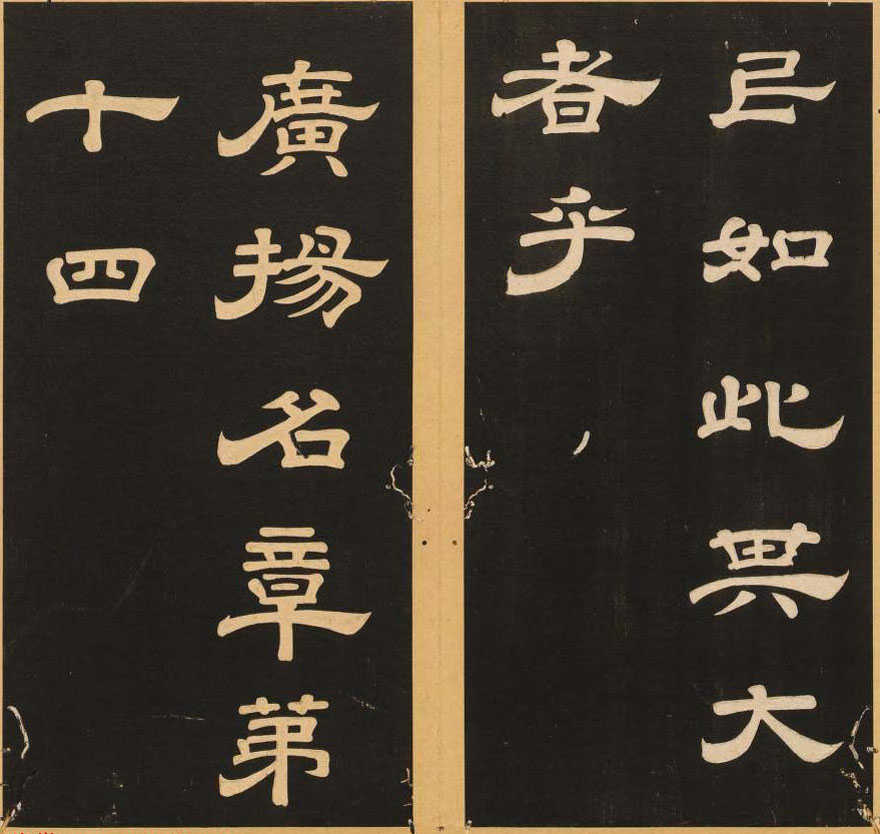 民如此其大
者乎
廣揚名章第
十四